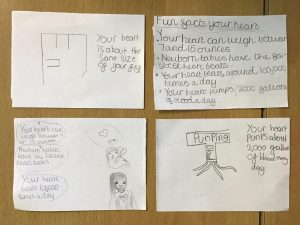 Your heart
is about the
same size
of your fist
Fun facts your heart
Your heart can weigh between
7 and 15 ounces
Newborn babies have the
fastest heart beats
Your heart beats around 100,000
times a day
Your heart pumps 2000 gallons
of blood a day
Your heart can
weigh between 7
or 15 ounces
Newborn babies
have the fastest
heart beats
Your heart
beats 100,000
times a day
Pumping
Your heart
pumps about
2,000 gallons
of blood every
day